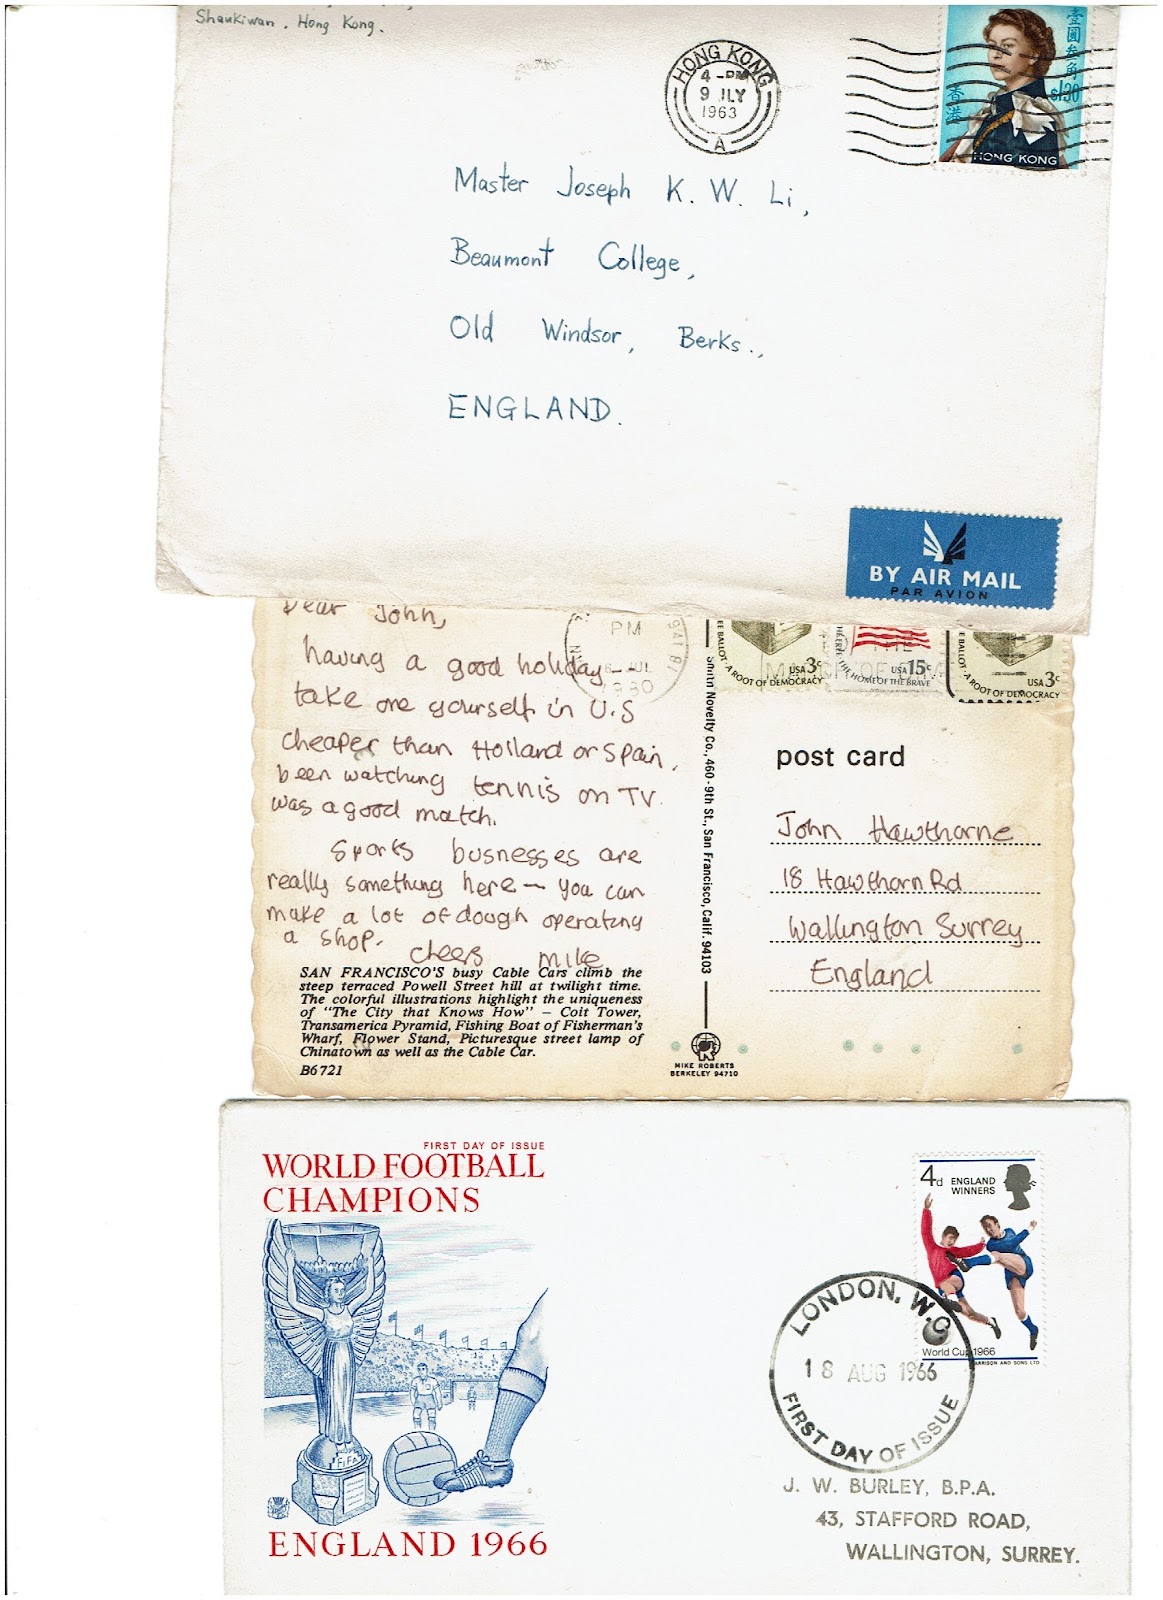 Shaukiwan. Hong Kong.
HONG KONG
4 - PM
9 JLY
1963
A
壹圓叁角
香港
$1.30
HONG KONG
Master Joseph K. W. Li,
Beaumont College,
Old Windsor, Berks.,
ENGLAND.
BY AIR MAIL
PAR AVION
Dear John,
having a good holiday
take one yourself in U.S
cheaper than Holland or Spain.
been watching tennis on TV.
was a good match.
Sports busnesses are
really something here – you can
make a lot of dough operating
a shop.
cheers mike
SAN FRANCISCO'S busy Cable Cars climb the
steep terraced Powell Street hill at twilight time.
The colorful illustrations highlight the uniqueness
of "The City that Knows How" – Coit Tower,
Transamerica Pyramid, Fishing Boat of Fisherman's
Wharf, Flower Stand, Picturesque street lamp of
Chinatown as well as the Cable Car.
B6721
PM
1980
941
Smith Novelty Co., 460 - 9th St., San Francisco, Calif. 94103
MIKE ROBERTS
BERKELEY 94710
USA 3c
BALLOT · A ROOT OF DEMOCRACY
USA 15c
THE HOME OF THE BRAVE
USA 3c
BALLOT · A ROOT OF DEMOCRACY
post card
John Hawthorne
18 Hawthorn Rd
Wallington Surrey
England
FIRST DAY OF ISSUE
WORLD FOOTBALL
CHAMPIONS
FIFA
ENGLAND 1966
4d ENGLAND
WINNERS
World Cup 1966
HARRISON AND SONS LTD
LONDON, W.C.
18 AUG 1966
FIRST DAY OF ISSUE
J. W. BURLEY, B.P.A.
43, STAFFORD ROAD,
WALLINGTON, SURREY.